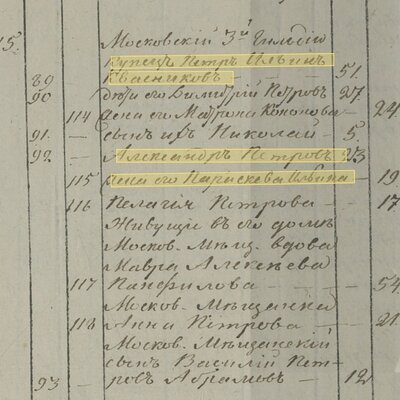 15. Московскій 3й Гильдіи
Купецъ Петръ Ильинъ
89 Квасниковъ — — 51.
90 дѣти его Димитрій Петровъ 27.
114 жена его Матрона Кононова — 24
91. — сынъ ихъ Николай — 5.
92. — Александръ Петровъ 23
115 жена его Параскева Ильина — 19
116 Пелагія Петрова — 17
Живущіе въ его домѣ
Москов. Мѣщ. вдова
Мавра Алексѣева
117 Панфилова — — 54.
Москов. Мѣщанка
118 Анна Петрова — — 21.
Москов. Мѣщанскій
сынъ Василій Пет-
93 — ровъ Абрамовъ — 12